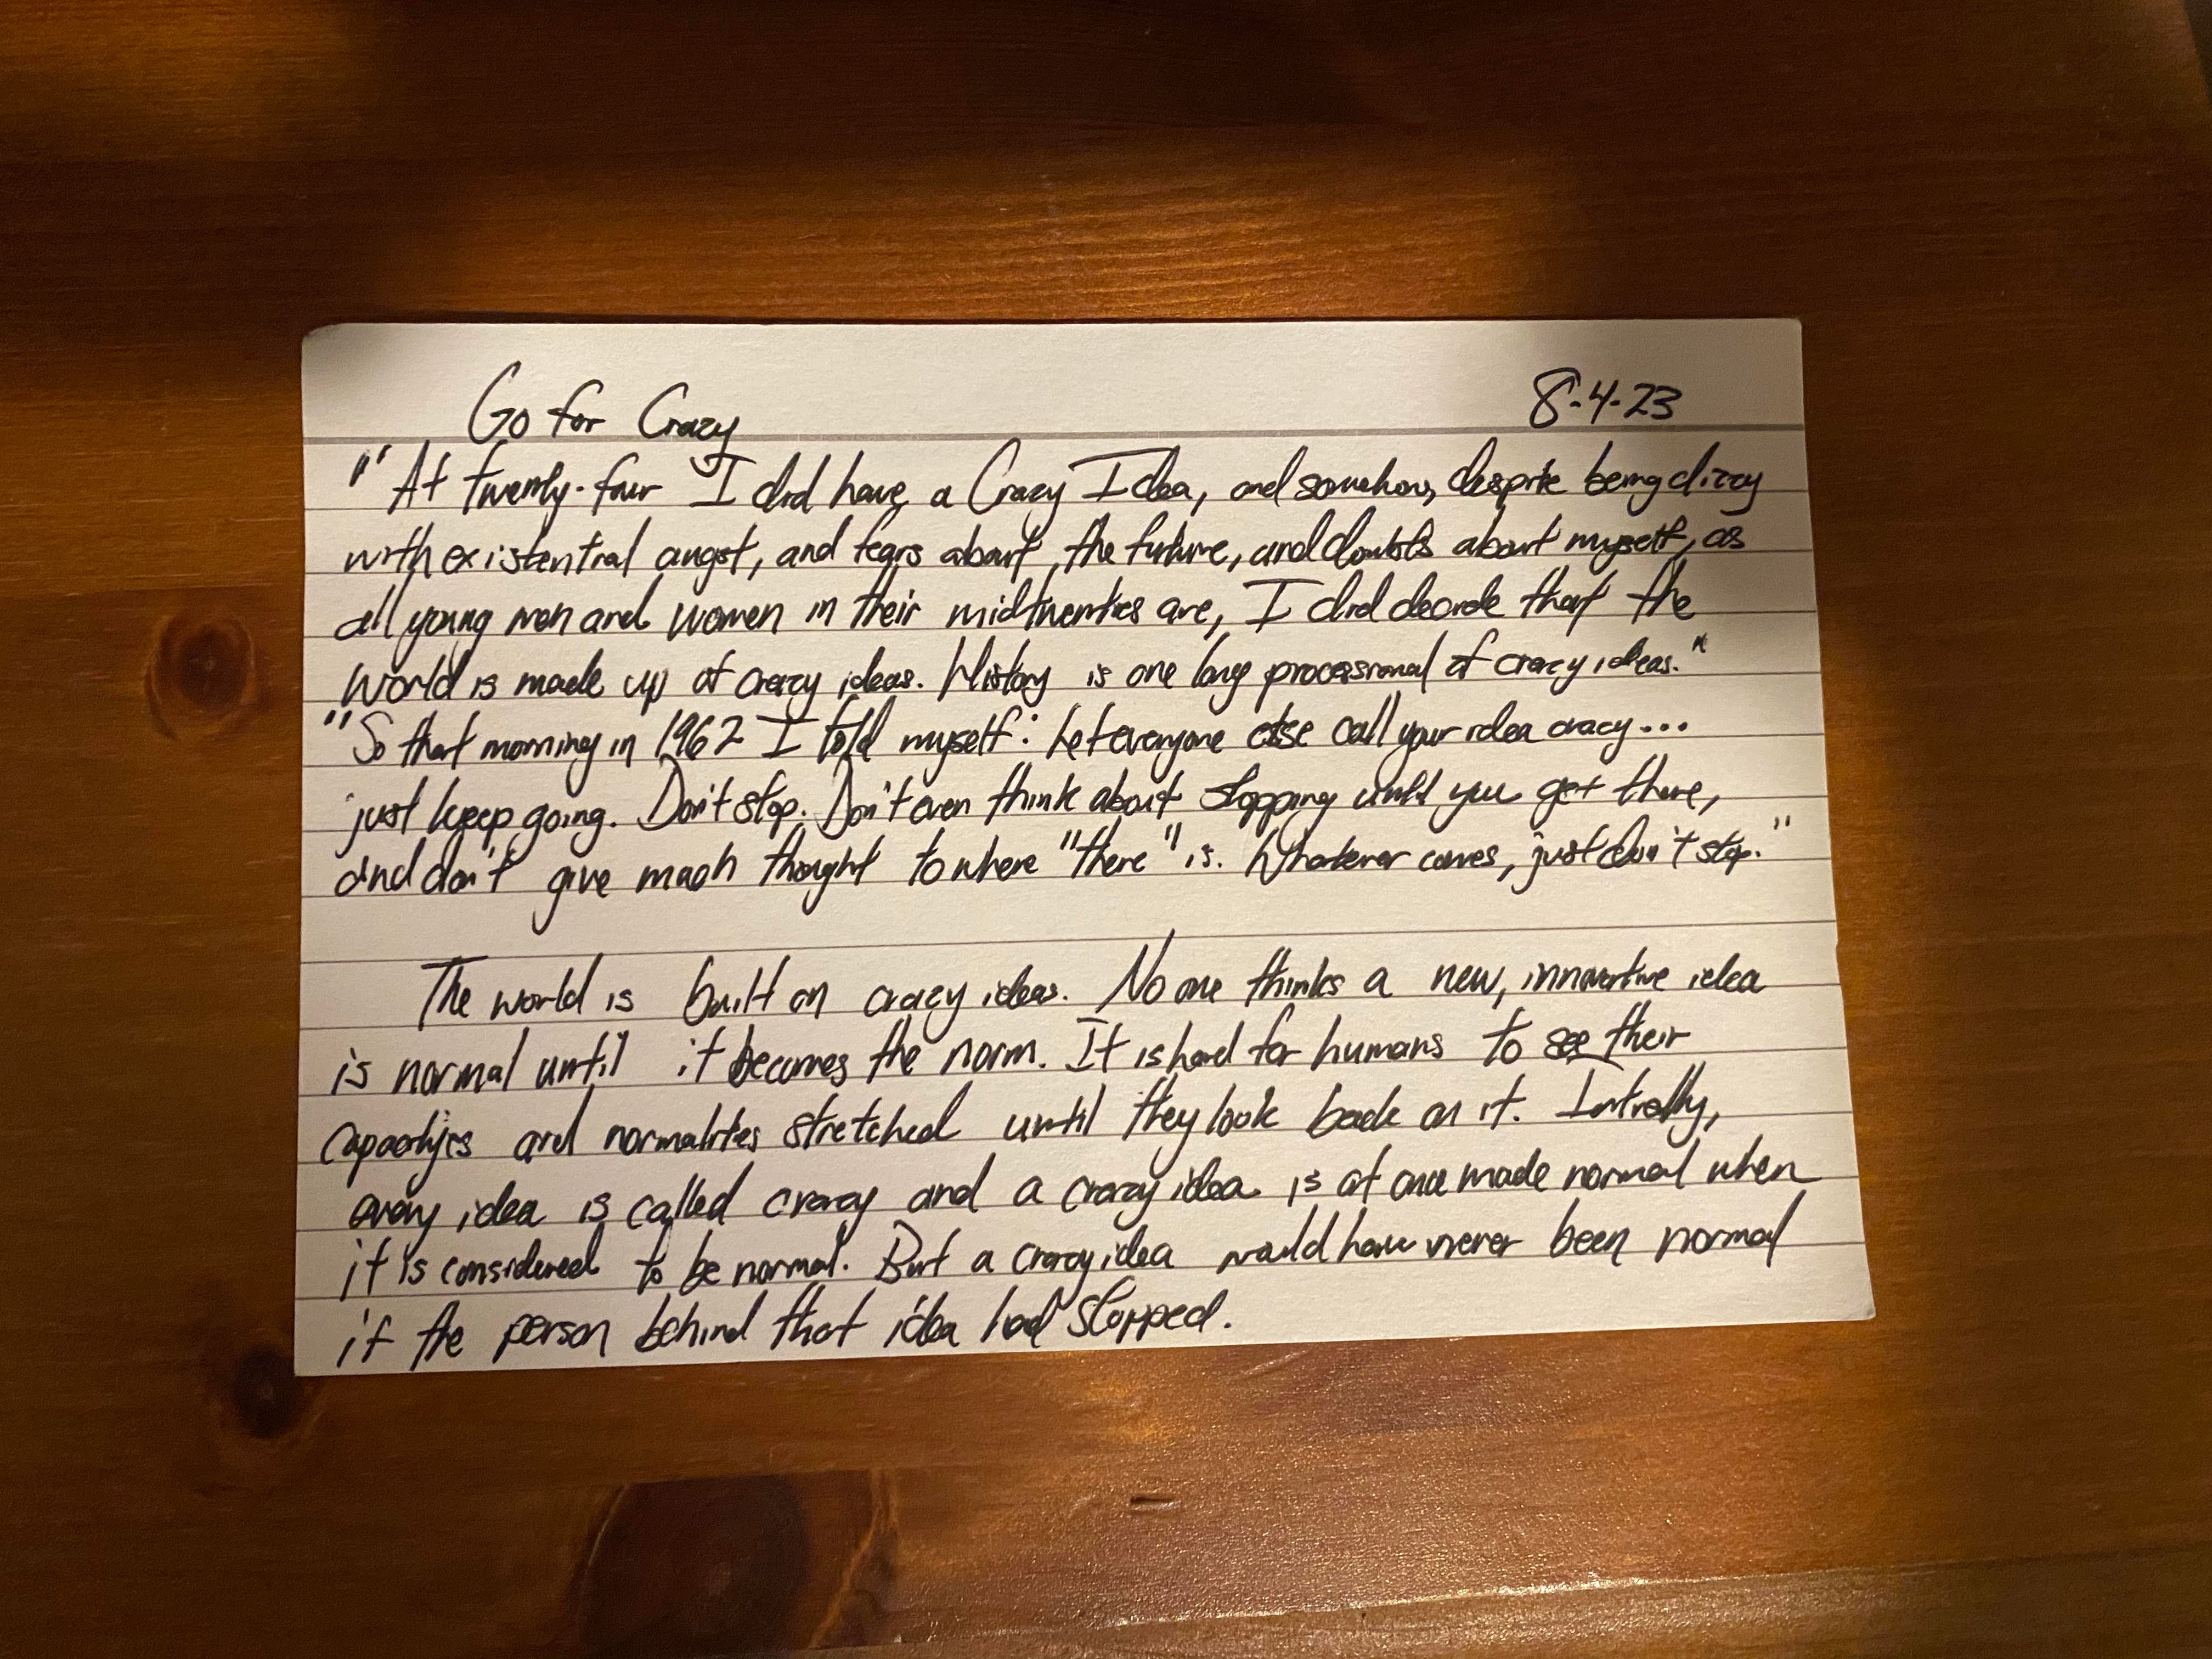 Go for Crazy 8-4-23
"At twenty-four I did have a Crazy Idea, and somehow, despite being dizzy
with existential angst, and fears about the future, and doubts about myself, as
all young men and women in their midtwenties are, I did decide that the
World is made up of crazy ideas. History is one long processional of crazy ideas."
"So that morning in 1962 I told myself: Let everyone else call your idea crazy...
just keep going. Don't stop. Don't even think about stopping until you get there,
and don't give much thought to where "there" is. Whatever comes, just don't stop."
The world is built on crazy ideas. No one thinks a new, innovative idea
is normal until it becomes the norm. It is hard for humans to see their
capacities and normalities stretched until they look back on it. Initially,
every idea is called crazy and a crazy idea is at once made normal when
it is considered to be normal. But a crazy idea would have never been normal
if the person behind that idea had stopped.